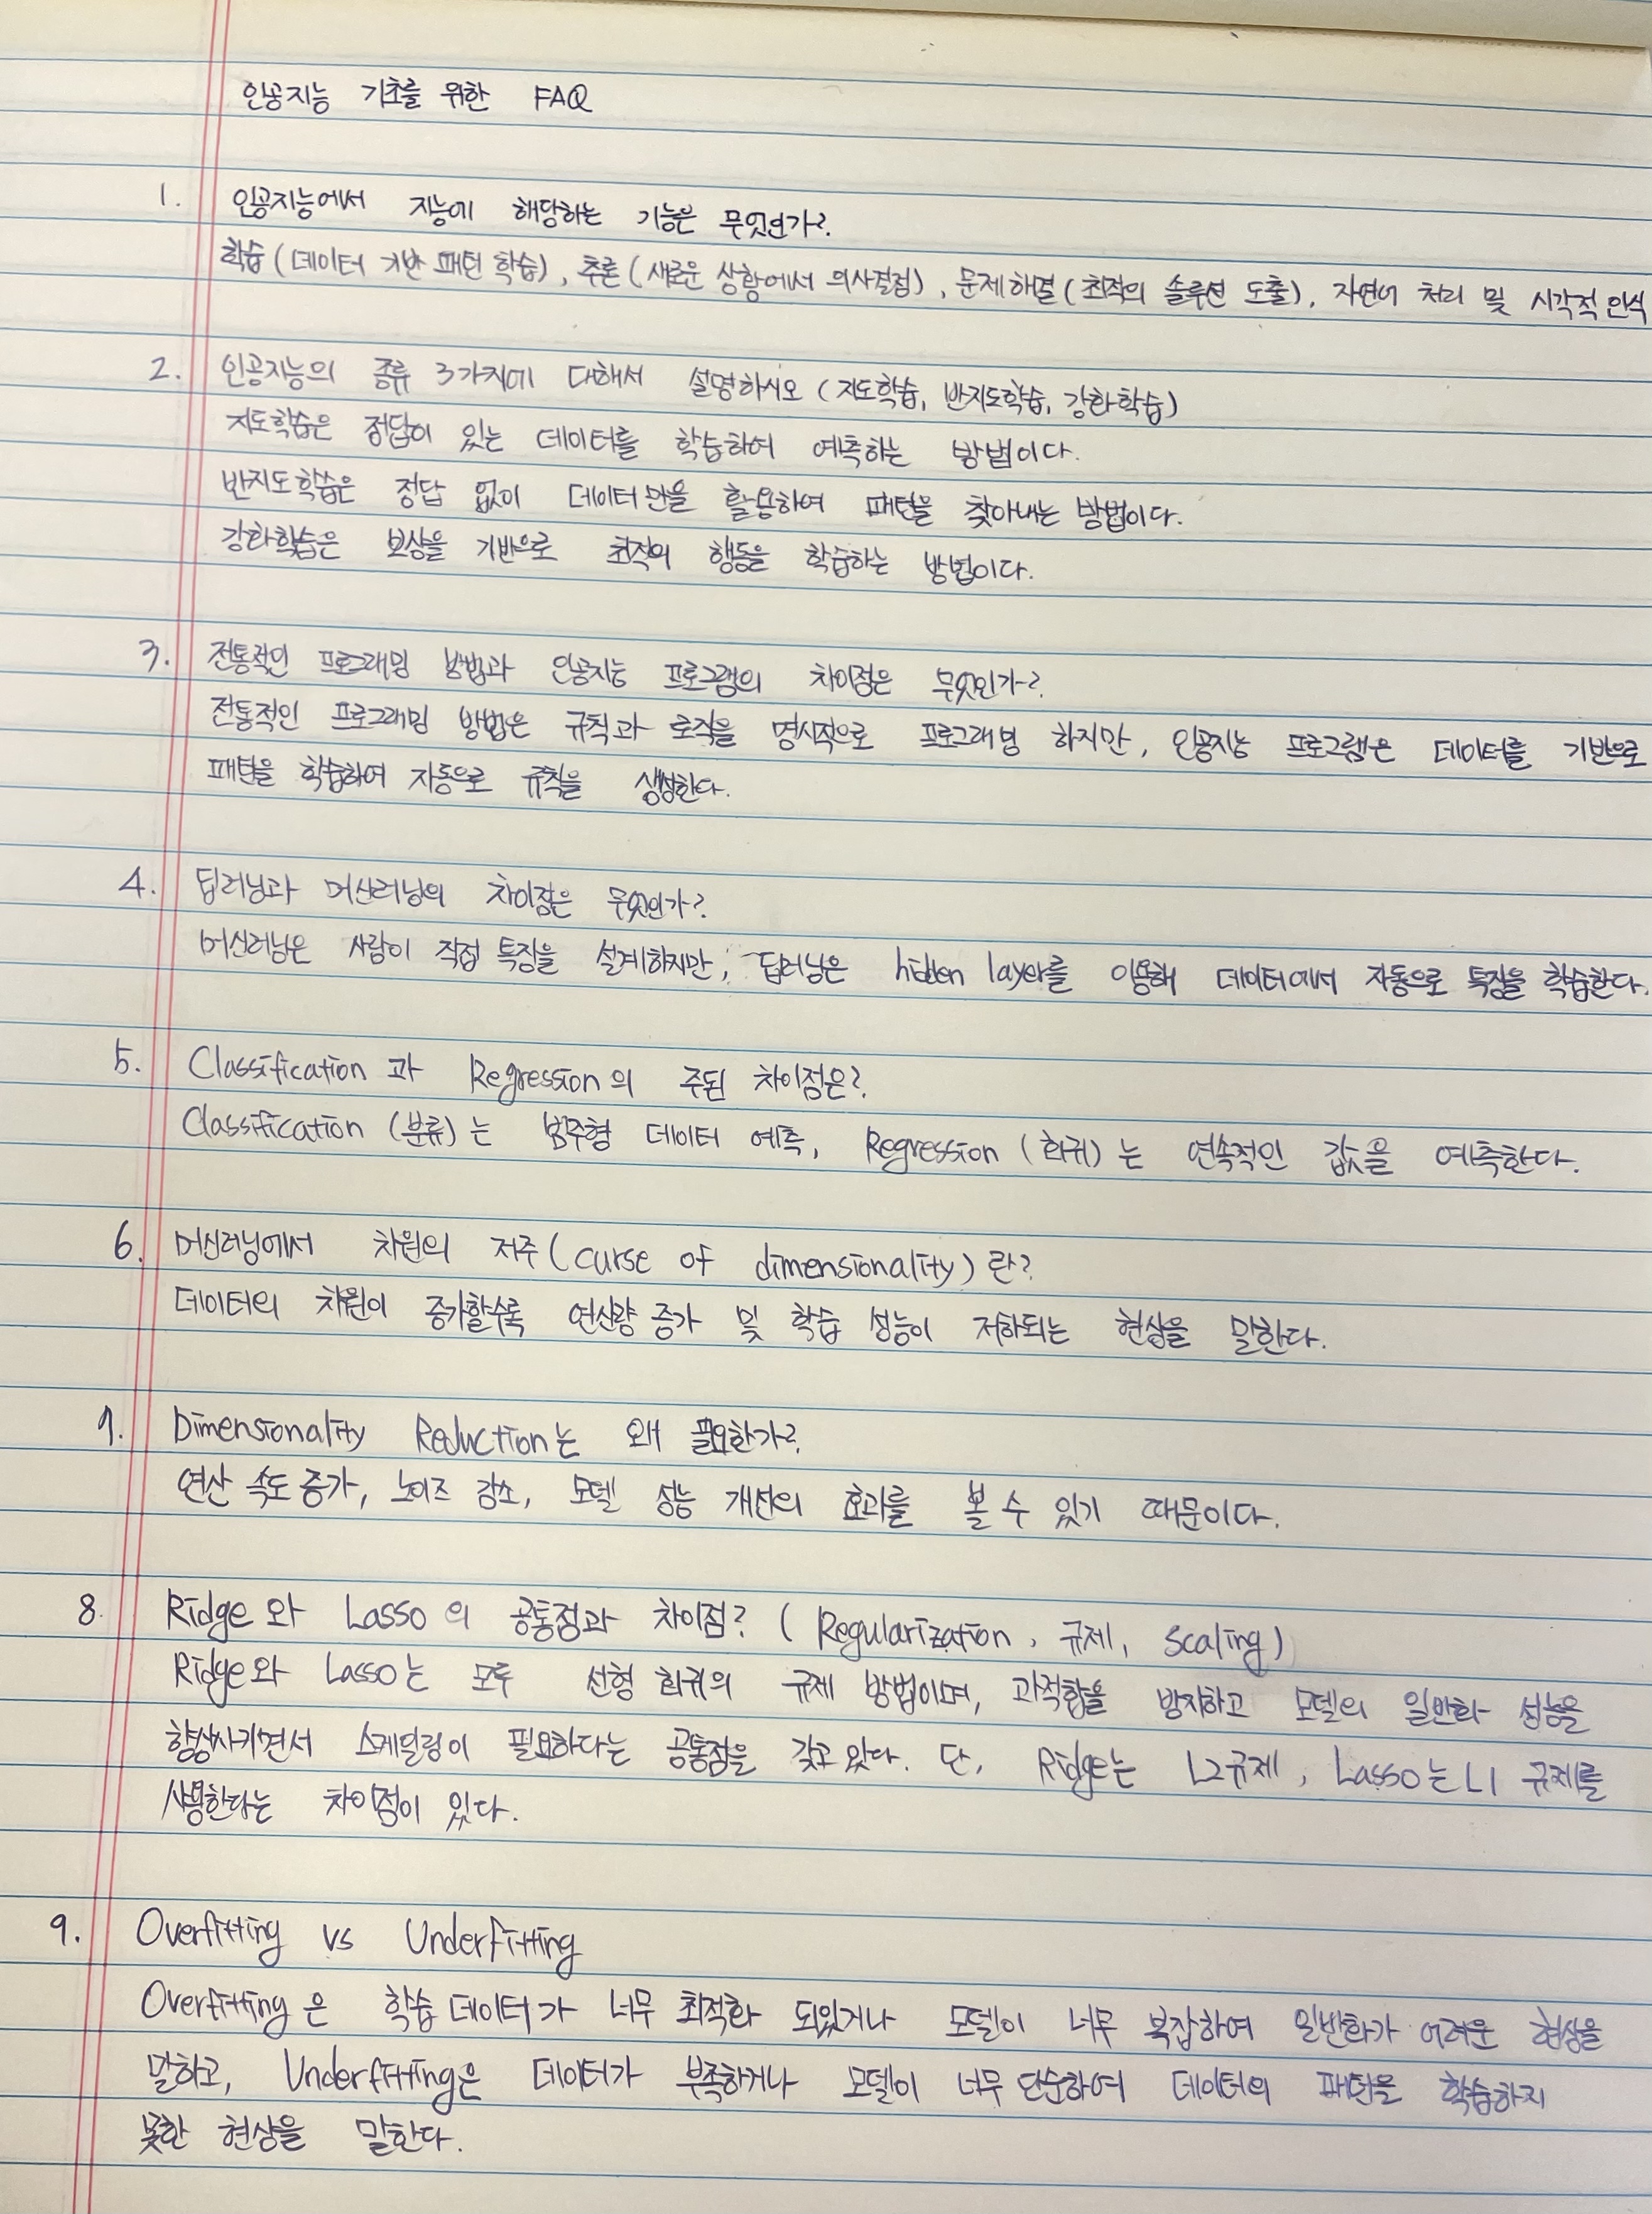 인공지능 기초를 위한 FAQ
1. 인공지능에서 지능에 해당하는 기능은 무엇인가?
학습(데이터 기반 패턴 학습), 추론(새로운 상황에서 의사결정), 문제해결(최적의 솔루션 도출), 자연어 처리 및 시각적 인식
2. 인공지능의 종류 3가지에 대해서 설명하시오 (지도학습, 반지도학습, 강화학습)
지도학습은 정답이 있는 데이터를 학습하여 예측하는 방법이다.
반지도학습은 정답 없이 데이터만을 활용하여 패턴을 찾아내는 방법이다.
강화학습은 보상을 기반으로 최적의 행동을 학습하는 방법이다.
3. 전통적인 프로그래밍 방법과 인공지능 프로그램의 차이점은 무엇인가?
전통적인 프로그래밍 방법은 규칙과 로직을 명시적으로 프로그래밍 하지만, 인공지능 프로그램은 데이터를 기반으로
패턴을 학습하여 자동으로 규칙을 생성한다.
4. 딥러닝과 머신러닝의 차이점은 무엇인가?
머신러닝은 사람이 직접 특징을 설계하지만, 딥러닝은 hidden layer를 이용해 데이터에서 자동으로 특징을 학습한다.
5. Classification과 Regression의 주된 차이점은?
Classification (분류)는 범주형 데이터 예측, Regression (회귀)는 연속적인 값을 예측한다.
6. 머신러닝에서 차원의 저주(curse of dimensionality)란?
데이터의 차원이 증가할수록 연산량 증가 및 학습 성능이 저하되는 현상을 말한다.
7. Dimensionality Reduction는 왜 필요한가?
연산 속도 증가, 노이즈 감소, 모델 성능 개선의 효과를 볼 수 있기 때문이다.
8. Ridge와 Lasso의 공통점과 차이점? (Regularization, 규제, scaling)
Ridge와 Lasso는 모두 선형 회귀의 규제 방법이며, 과적합을 방지하고 모델의 일반화 성능을
향상시키면서 스케일링이 필요하다는 공통점을 갖고 있다. 단, Ridge는 L2규제, Lasso는 L1 규제를
사용한다는 차이점이 있다.
9. Overfitting vs Underfitting
Overfitting은 학습 데이터가 너무 최적화 되있거나 모델이 너무 복잡하여 일반화가 어려운 현상을
말하고, Underfitting은 데이터가 부족하거나 모델이 너무 단순하여 데이터의 패턴을 학습하지
못한 현상을 말한다.